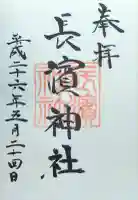 奉拝
長濱神社
平成二十六年五月二十四日